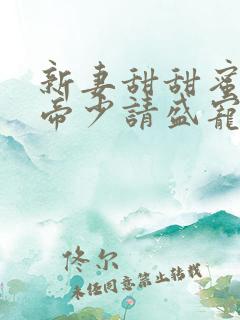 新妻甜甜蜜
帝少請盛寵
佟尔
未经同意禁止转载